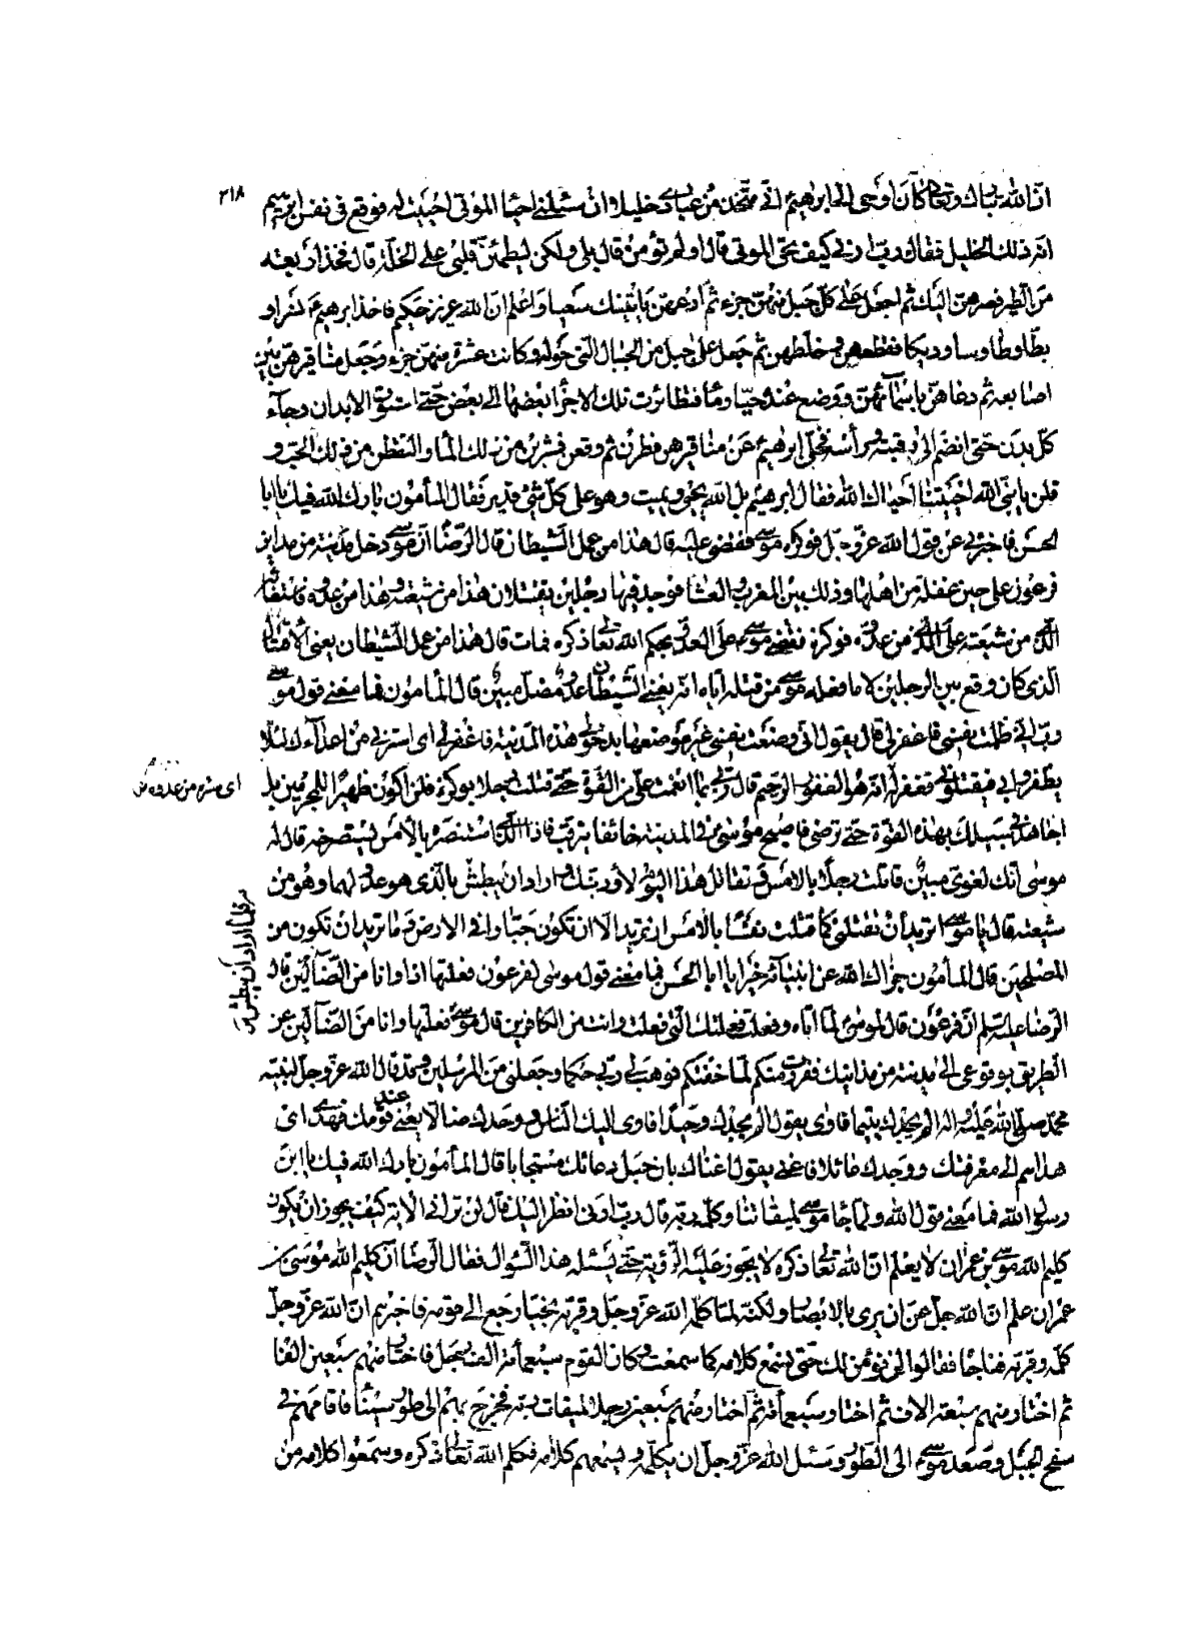 ٢١٨
ان الله تبارك وتعالى كان اوحى الى ابراهيم انى متخذ من عبادى خليلا وان سئلنى احياء الموتى احييت له فوقع فى نفس ابرهيم
انه ذلك الخليل فقال رب ارنى كيف تحيى الموتى قال اولم تؤمن قال بلى ولكن ليطمئن قلبى على الخلة قال فخذ اربعة
من الطير فصرهن اليك ثم اجعل على كل جبل منهن جزء ثم ادعهن ياتينك سعيا واعلم ان الله عزيز حكيم فاخذ ابرهيم نسرا و
بطا وطاوسا وديكا فقطعهن وخلطهن ثم جعل على كل جبل من الجبال التى حوله وكانت عشرة منهن جزء وجعل مناقيرهن بين
اصابعه ثم دعاهن باسمائهن ووضع عنده حبا وماء فتطايرت تلك الاجزاء بعضها الى بعض حتى استوت الابدان وجاء
كل بدن حتى انضم الى رقبته وراسه فخلى ابراهيم عن مناقيرهن فطرن ثم وقعن فشربن من ذلك الماء والتقطن من ذلك الحب و
قلن يا نبى الله احييتنا احياك الله فقال ابرهيم بل الله يحيى ويميت وهو على كل شئ قدير فقال المأمون بارك الله فيك يا ابا
الحسن فاخبرنى عن قول الله عز وجل فوكزه موسى فقضى عليه قال هذا من عمل الشيطان قال الرضا ان موسى دخل مدينة من مداين
فرعون على حين غفلة من اهلها وذلك بين المغرب والعشاء فوجد فيها رجلين يقتتلان هذا من شيعته وهذا من عدوه فاستغاثه
الذى من شيعته على الذى من عدوه فوكزه فقضى موسى على العدو بحكم الله تعالى ذكره فمات قال هذا من عمل الشيطان يعنى الاقتتال
الذى كان وقع بين الرجلين لا ما فعله موسى من قتله اياه انه يعنى الشيطان عدو مضل مبين قال المأمون فما معنى قول موسى
رب انى ظلمت نفسى فاغفر لى قال يقول انى وضعت نفسى غير موضعها بدخولى هذه المدينة فاغفر لى اى استرنى من اعدائك لئلا
يظفروا بى فيقتلونى فغفر له انه هو الغفور الرحيم قال رب بما انعمت على من القوة حتى قتلت رجلا بوكزة فلن اكون ظهيرا للمجرمين بل
اى ستره من عدوه
اجاهد فى سبيلك بهذه القوة حتى ترضى فاصبح موسى فى المدينة خائفا يترقب فاذا الذى استنصره بالامس يستصرخه قال له
موسى انك لغوى مبين قاتلت رجلا بالامس وتقاتل هذا اليوم لاؤدبنك واراد ان يبطش بالذى هو عدو لهما وهو من
فلما اراد ان يبطش
شيعته قال يا موسى اتريد ان تقتلنى كما قتلت نفسا بالامس ان تريد الا ان تكون جبارا فى الارض وما تريد ان تكون من
المصلحين قال المأمون جزاك الله عن انبيائه خيرا يا ابا الحسن فما معنى قول موسى لفرعون فعلتها اذا وانا من الضالين قال
الرضا عليه السلم ان فرعون قال لموسى لما اتاه وفعلت فعلتك التى فعلت وانت من الكافرين قال موسى فعلتها وانا من الضالين عن
الطريق بوقوعى الى مدينة من مداينك ففررت منكم لما خفتكم فوهب لى ربى حكما وجعلنى من المرسلين وقد قال الله عز وجل لنبيه
محمد صلى الله عليه واله الم يجدك يتيما فاوى يقول الم يجدك وحيدا فاوى اليك الناس ووجدك ضالا يعنى عند قومك فهدى اى
هداهم الى معرفتك ووجدك عائلا فاغنى يقول اغناك بان جعل دعائك مستجابا قال المأمون بارك الله فيك يا ابن
رسول الله فما معنى قول الله ولما جاء موسى لميقاتنا وكلمه ربه قال رب ارنى انظر اليك قال لن ترانى الاية كيف يجوز ان يكون
كليم الله موسى بن عمران لا يعلم ان الله تعالى ذكره لا يجوز عليه الرؤية حتى يسئله هذا السؤال فقال الرضا ان كليم الله موسى بن
عمران علم ان الله جل عن ان يرى بالابصار ولكنه لما كلمه الله عز وجل وقربه نجيا رجع الى قومه فاخبرهم ان الله عز وجل
كلمه وقربه وناجاه فقالوا لن نؤمن لك حتى نسمع كلامه كما سمعت وكان القوم سبعمأة الف رجل فاختار منهم سبعين الفا
ثم اختار منهم سبعة الاف ثم اختار سبعمأة ثم اختار منهم سبعين رجلا لميقات ربه فخرج بهم الى طور سيناء فاقامهم فى
سفح الجبل وصعد موسى الى الطور وسئل الله عز وجل ان يكلمه ويسمعهم كلامه فكلمه الله تعالى ذكره وسمعوا كلامه من